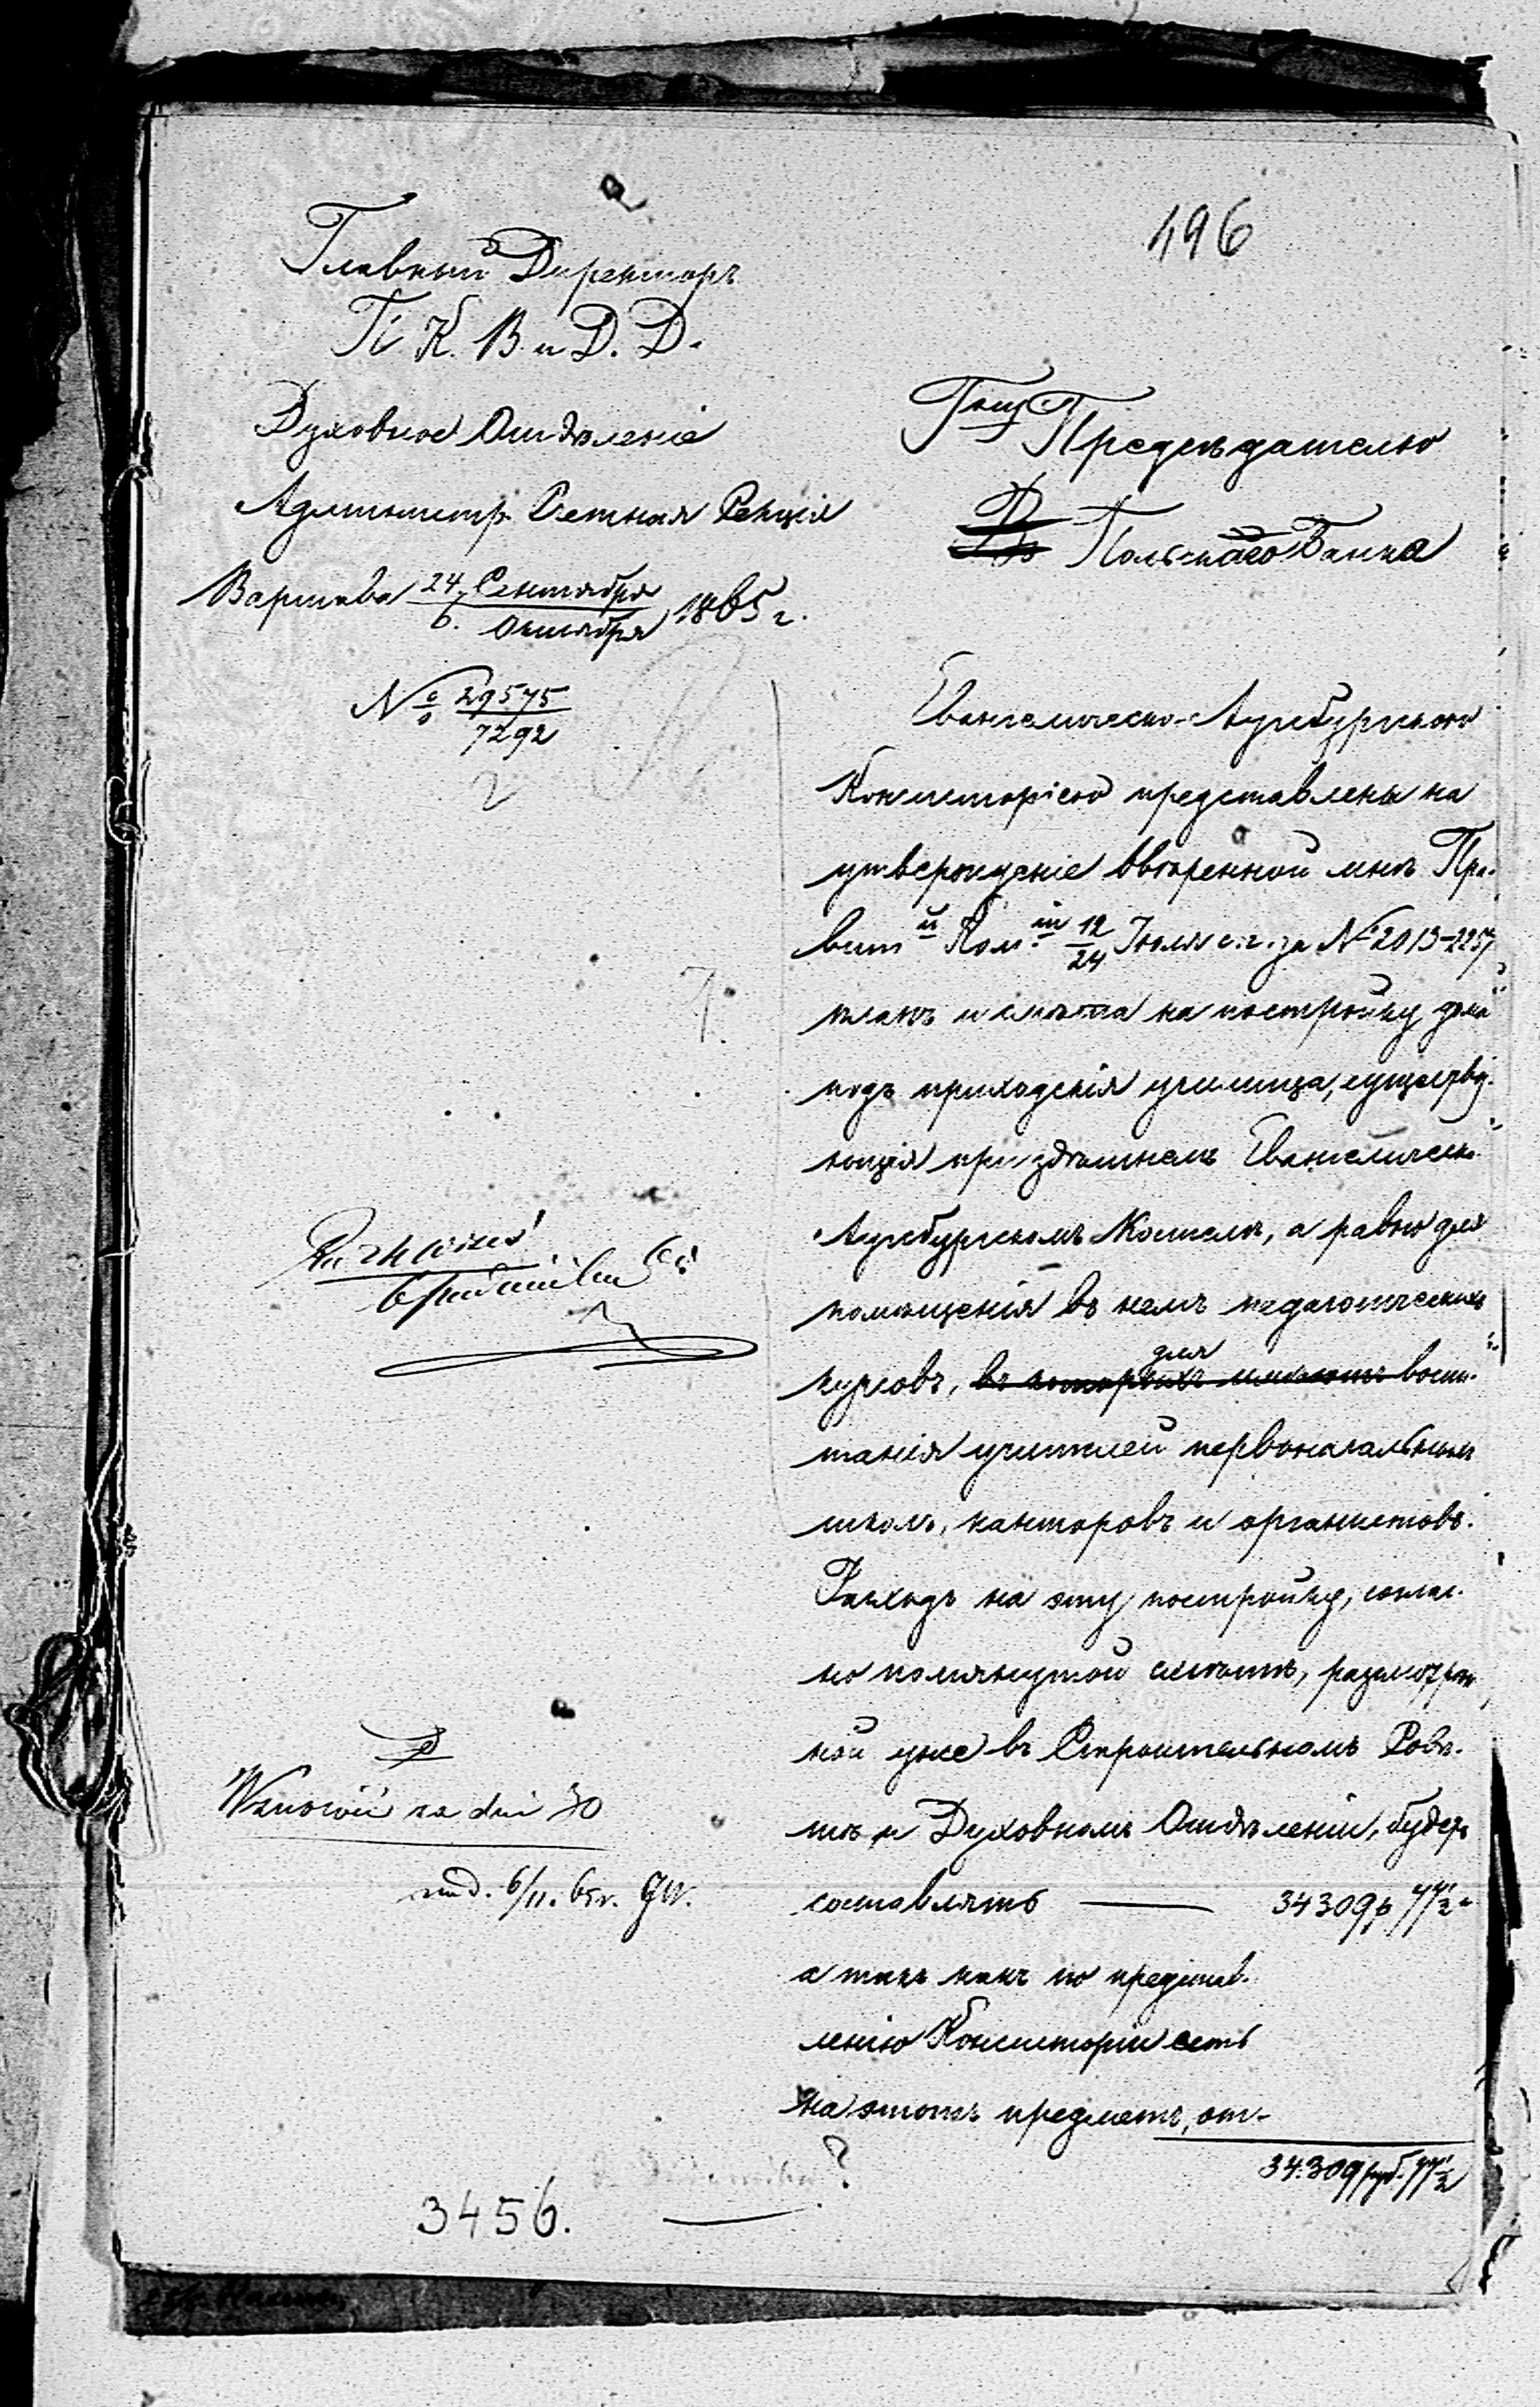 496
Главный Директоръ
П. К. В. и Д. Д.
Духовное Отдѣленіе
Админстр. Счетная Секція
Варшава 24 Сентября / 6 Октября 1865 г.
№ 29575 / 7292
Госп. Предсѣдателю
Польскаго Банка
Евангелическо-Аугсбургскою
Консисторіею представлены на
утвержденіе ввѣренной мнѣ Пра-
вит й Ком. іи 12/24 Іюля с. г. за № 2013-2257
планъ и смѣта на постройку дома
подъ приходскія училища, существу-
ющія при здѣшнемъ Евангелическо-
Аугсбургскомъ Костелѣ, а равно для
помѣщенія въ немъ педагогическихъ
курсовъ, въ которыхъ имѣютъ для воспи-
танія учителей первоначальныхъ
школъ, канторовъ и органистовъ.
Расходъ на эту постройку, соглас-
но помянутой смѣтѣ, разсмотрѣн-
ной уже въ Строительномъ Совѣ-
тѣ и Духовномъ Отдѣленіи, будетъ
составлять — 34309 р 44½ к
а такъ какъ по представ-
ленію Консисторіи есть
на этотъ предметъ, от-
34.309 руб. 44½
Wznowić za dni 30
6/11. 65 r.
3456.
?